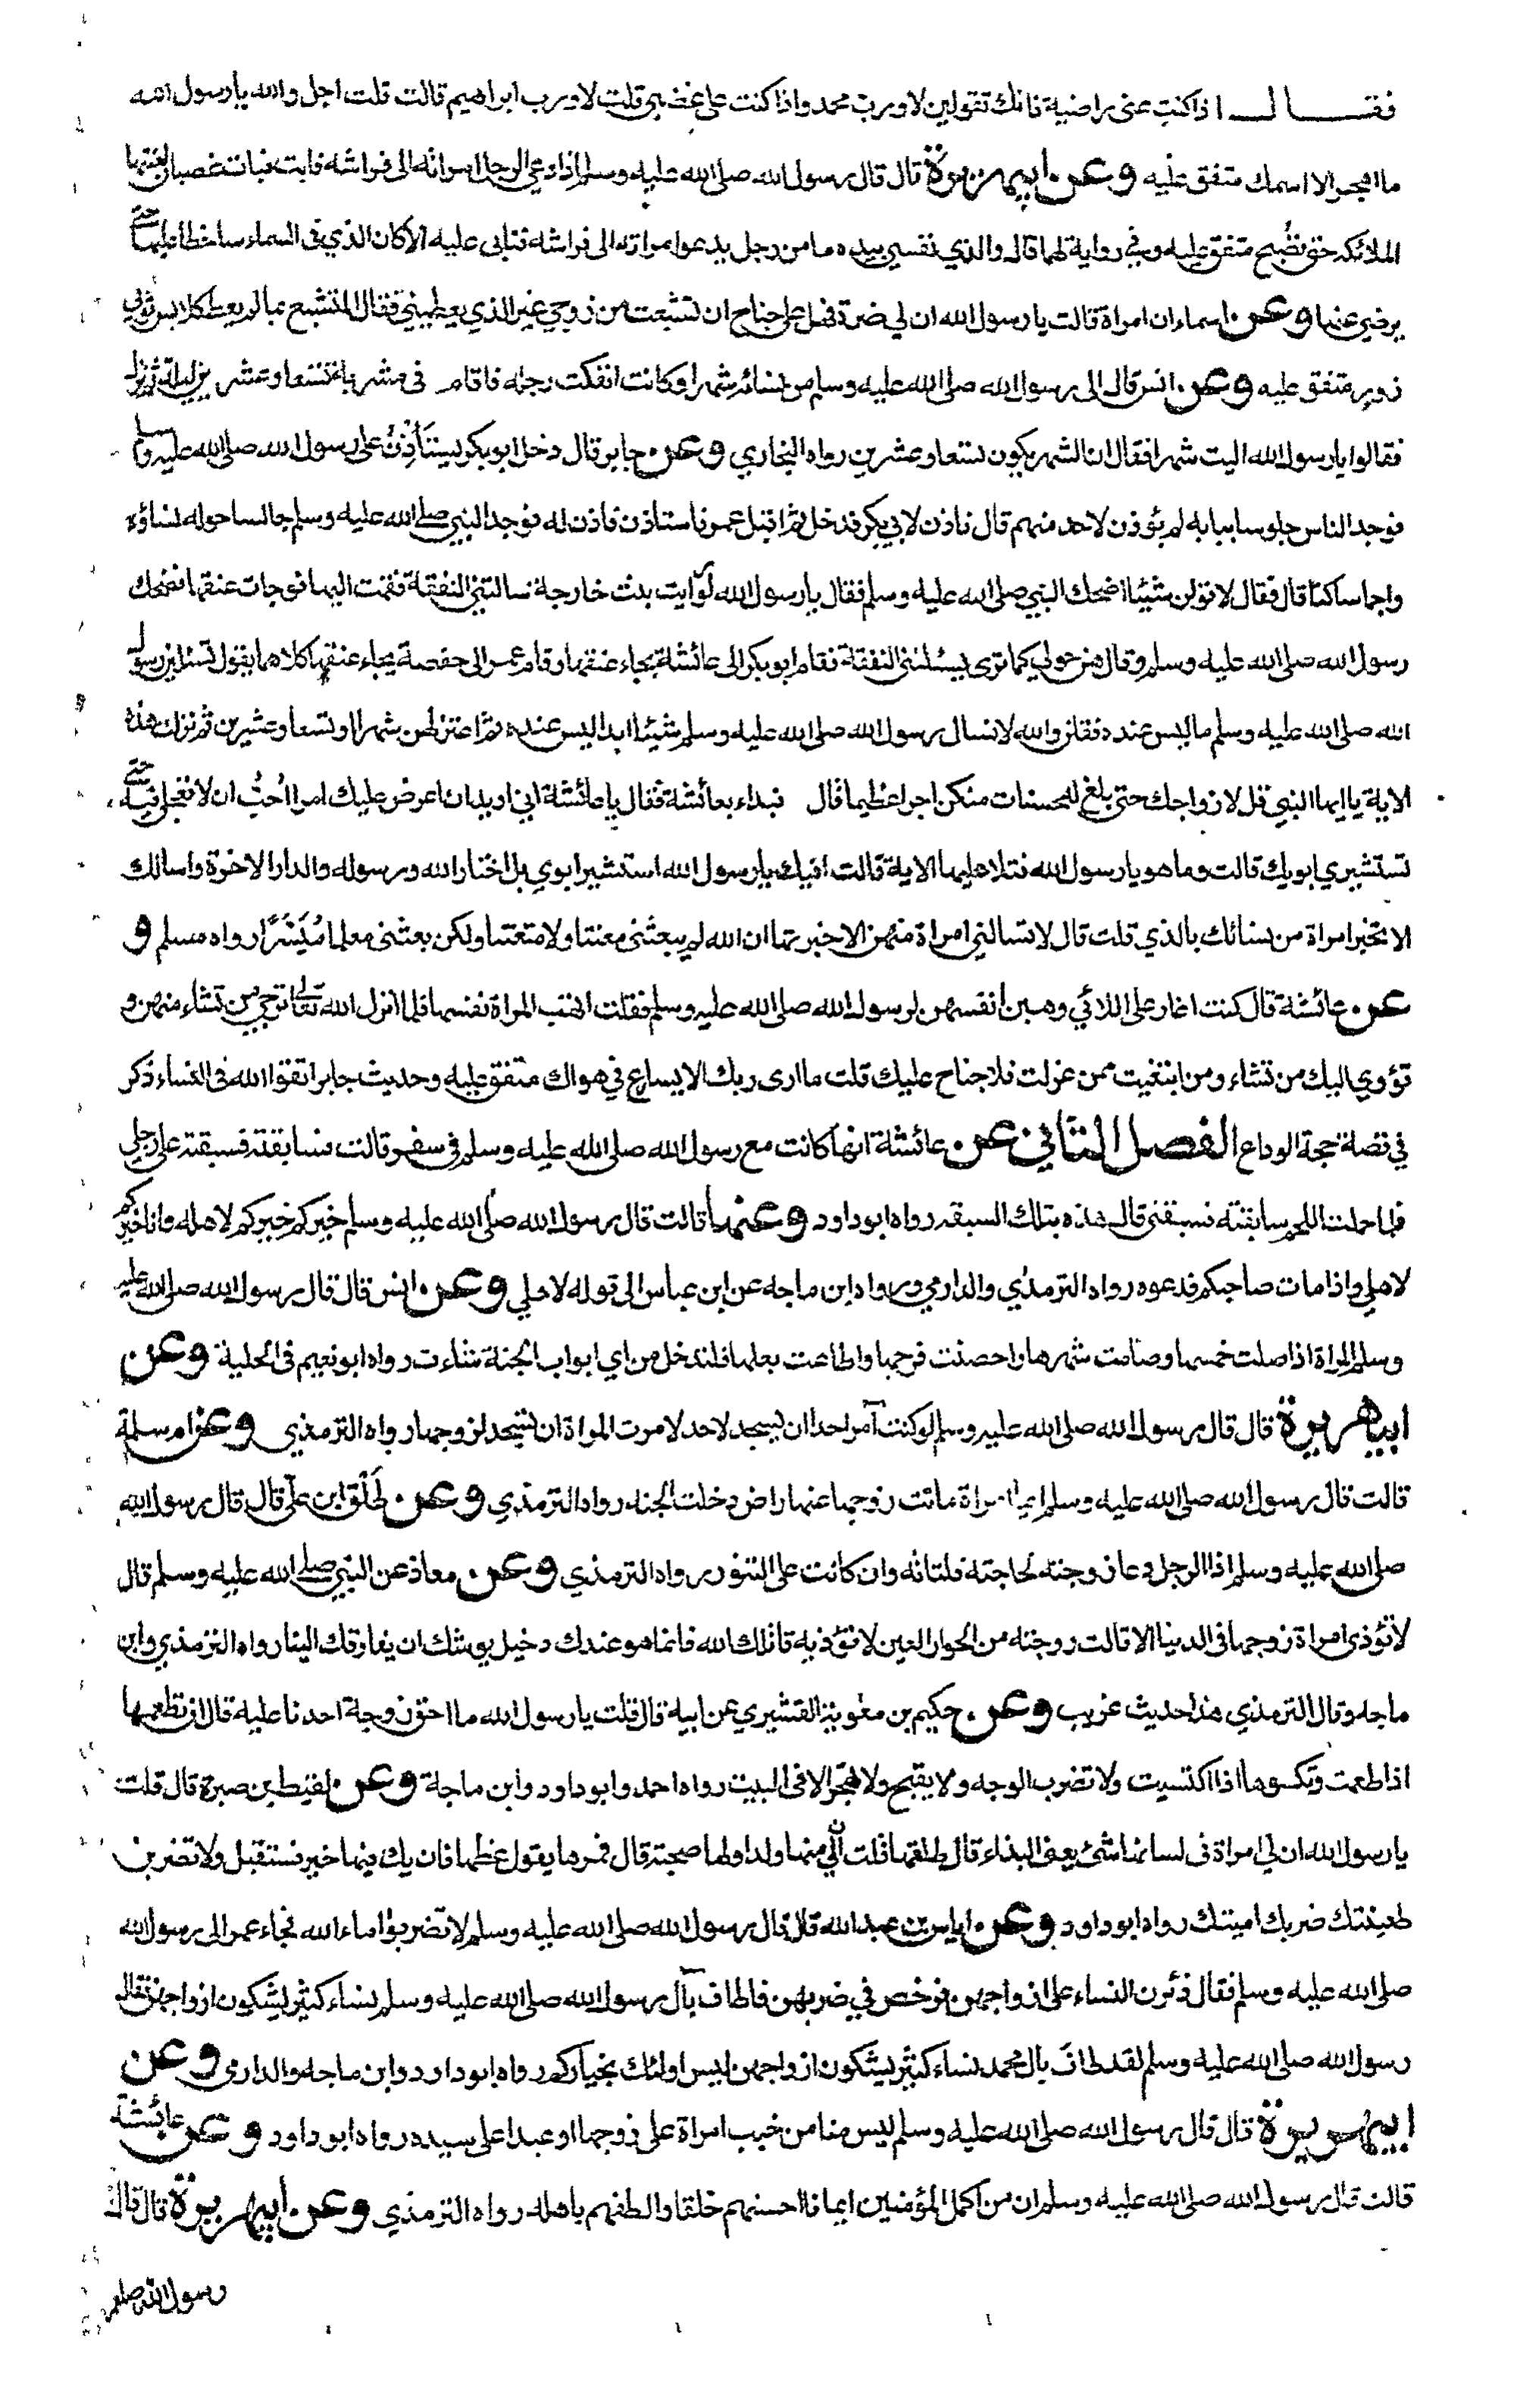 فقال اذا كنت عنى راضية فانك تقولين لا ورب محمد واذا كنت على غضبى قلت لا ورب ابراهيم قالت قلت اجل والله يا رسول الله
ما اهجر الا اسمك متفق عليه وعن ابي هريرة قال قال رسول الله صلى الله عليه وسلم اذا دعي الرجل امراته الى فراشه فابت فبات غضبان لعنتها
الملائكه حتى تصبح متفق عليه وفي رواية لهما قال والذي نفسي بيده ما من رجل يدعو امراته الى فراشه فتابى عليه الا كان الذي في السماء ساخطا عليها حتى
يرضي عنها وعن اسماء ان امراة قالت يا رسول الله ان لي ضرة فهل علي جناح ان تشبعت من زوجي غير الذي يعطيني فقال المتشبع بما لم يعط كلابس ثوبي
زوير متفق عليه وعن انس قال الى رسول الله صلى الله عليه وسلم من نسائه شهرا وكانت انفكت رجله فاقام في مشربة تسعا وعشرين ليلة ثم نزل
فقالوا يا رسول الله اليت شهرا فقال ان الشهر يكون تسعا وعشرين رواه البخاري وعن جابر قال دخل ابو بكر يستأذن على رسول الله صلى الله عليه وسلم
فوجد الناس جلوسا ببابه لم يؤذن لاحد منهم قال فاذن لابي بكر فدخل ثم اقبل عمر فاستاذن فاذن له فوجد النبي صلى الله عليه وسلم جالسا حوله نساؤه
واجما ساكتا قال فقال لاقولن شيئا اضحك النبي صلى الله عليه وسلم فقال يا رسول الله لو رايت بنت خارجة سالتني النفقة فقمت اليها فوجات عنقها فضحك
رسول الله صلى الله عليه وسلم وقال هن حولي كما ترى يسئلنني النفقة فقام ابو بكر الى عائشة يجاء عنقها وقام عمر الى حفصة يجاء عنقها كلاهما يقول تسئلين رسول
الله صلى الله عليه وسلم ما ليس عنده فقلن والله لا نسال رسول الله صلى الله عليه وسلم شيئا ابدا ليس عنده ثم اعتزلهن شهرا او تسعا وعشرين ثم نزلت هذه
الاية يا ايها النبي قل لازواجك حتى بلغ للمحسنات منكن اجرا عظيما قال فبداء بعائشة فقال يا عائشة اني اريد ان اعرض عليك امرا احب ان لا تعجلي فيه حتى
تستشيري ابويك قالت وما هو يا رسول الله فتلا عليها الاية قالت افيك يا رسول الله استشير ابوي بل اختار الله ورسوله والدار الاخرة واسالك
الا تخبر امراة من نسائك بالذي قلت قال لا تسالني امراة منهن الا خبرتها ان الله لم يبعثنى معنتا ولا متعنتا ولكن بعثنى معلما مُيَسِّرًا رواه مسلم و
عن عائشة قال كنت اغار على اللائي وهبن انفسهن لرسول الله صلى الله عليه وسلم فقلت اتهب المراة نفسها فلما انزل الله تعالى ترجي من تشاء منهن و
تؤوي اليك من تشاء ومن ابتغيت ممن عزلت فلا جناح عليك قلت ما ارى ربك الا يسارع في هواك متفق عليه وحديث جابر اتقوا الله في النساء ذكر
في قصة حجة الوداع الفصل الثاني عن عائشة انها كانت مع رسول الله صلى الله عليه وسلم في سفر قالت فسابقته فسبقته على رجلي
فلما حملت اللحم سابقته فسبقني قال هذه بتلك السبقه رواه ابو داود وعنها قالت قال رسول الله صلى الله عليه وسلم خيركم خيركم لاهله وانا خيركم
لاهلي واذا مات صاحبكم فدعوه رواه الترمذي والدارمي ورواه ابن ماجه عن ابن عباس الى قوله لاهلي وعن انس قال قال رسول الله صلى الله عليه
وسلم المراة اذا صلت خمسها وصامت شهرها واحصنت فرجها واطاعت بعلها فلتدخل من اي ابواب الجنة شاءت رواه ابو نعيم في الحلية وعن
ابي هريرة قال قال رسول الله صلى الله عليه وسلم لو كنت آمر احدا ان يسجد لاحد لامرت المراة ان تسجد لزوجها رواه الترمذي وعن ام سلمة
قالت قال رسول الله صلى الله عليه وسلم ايما امراة ماتت زوجها عنها راض دخلت الجنه رواه الترمذي وعن طَلْق ابن علي قال قال رسول الله
صلى الله عليه وسلم اذا الرجل دعا زوجته لحاجته فلتاته وان كانت على التنور رواه الترمذي وعن معاذ عن النبي صلى الله عليه وسلم قال
لا تؤذي امراة زوجها في الدنيا الا قالت زوجته من الحوار العين لا تؤذيه قاتلك الله فانما هو عندك دخيل يوشك ان يفارقك الينا رواه الترمذي وابن
ماجه وقال الترمذي هذا حديث غريب وعن حكيم بن معوية القشيري عن ابيه قال قلت يا رسول الله ما حق زوجة احدنا عليه قال ان تطعمها
اذا طعمت وتكسوها اذا اكتسيت ولا تضرب الوجه ولا يقبح ولا تهجر الا في البيت رواه احمد وابو داود وابن ماجة وعن لقيط بن صبرة قال قلت
يا رسول الله ان لي امراة في لسانها شئ يعنى البذاء قال طلقها قلت ان لي منها ولدا ولها صحبة قال فمرها يقول عظها فان يك فيها خير فستقبل ولا تضربن
ظعينتك ضربك اميتك رواه ابو داود وعن اياس بن عبد الله قال قال رسول الله صلى الله عليه وسلم لا تضربوا اماء الله فجاء عمر الى رسول الله
صلى الله عليه وسلم فقال ذئرن النساء على ازواجهن فرخص في ضربهن فاطاف بآل رسول الله صلى الله عليه وسلم نساء كثير يشكون ازواجهن فقال
رسول الله صلى الله عليه وسلم لقد طاف بال محمد نساء كثير يشكون ازواجهن ليس اولئك بخياركم رواه ابو داود وابن ماجه والدارمي وعن
ابي هريرة قال قال رسول الله صلى الله عليه وسلم ليس منا من خبب امراة على زوجها او عبدا على سيده رواه ابو داود وعن عائشة
قالت قال رسول الله صلى الله عليه وسلم ان من اكمل المؤمنين ايمانا احسنهم خلقا والطفهم باهله رواه الترمذي وعن ابي هريرة قال قال
رسول الله صلى